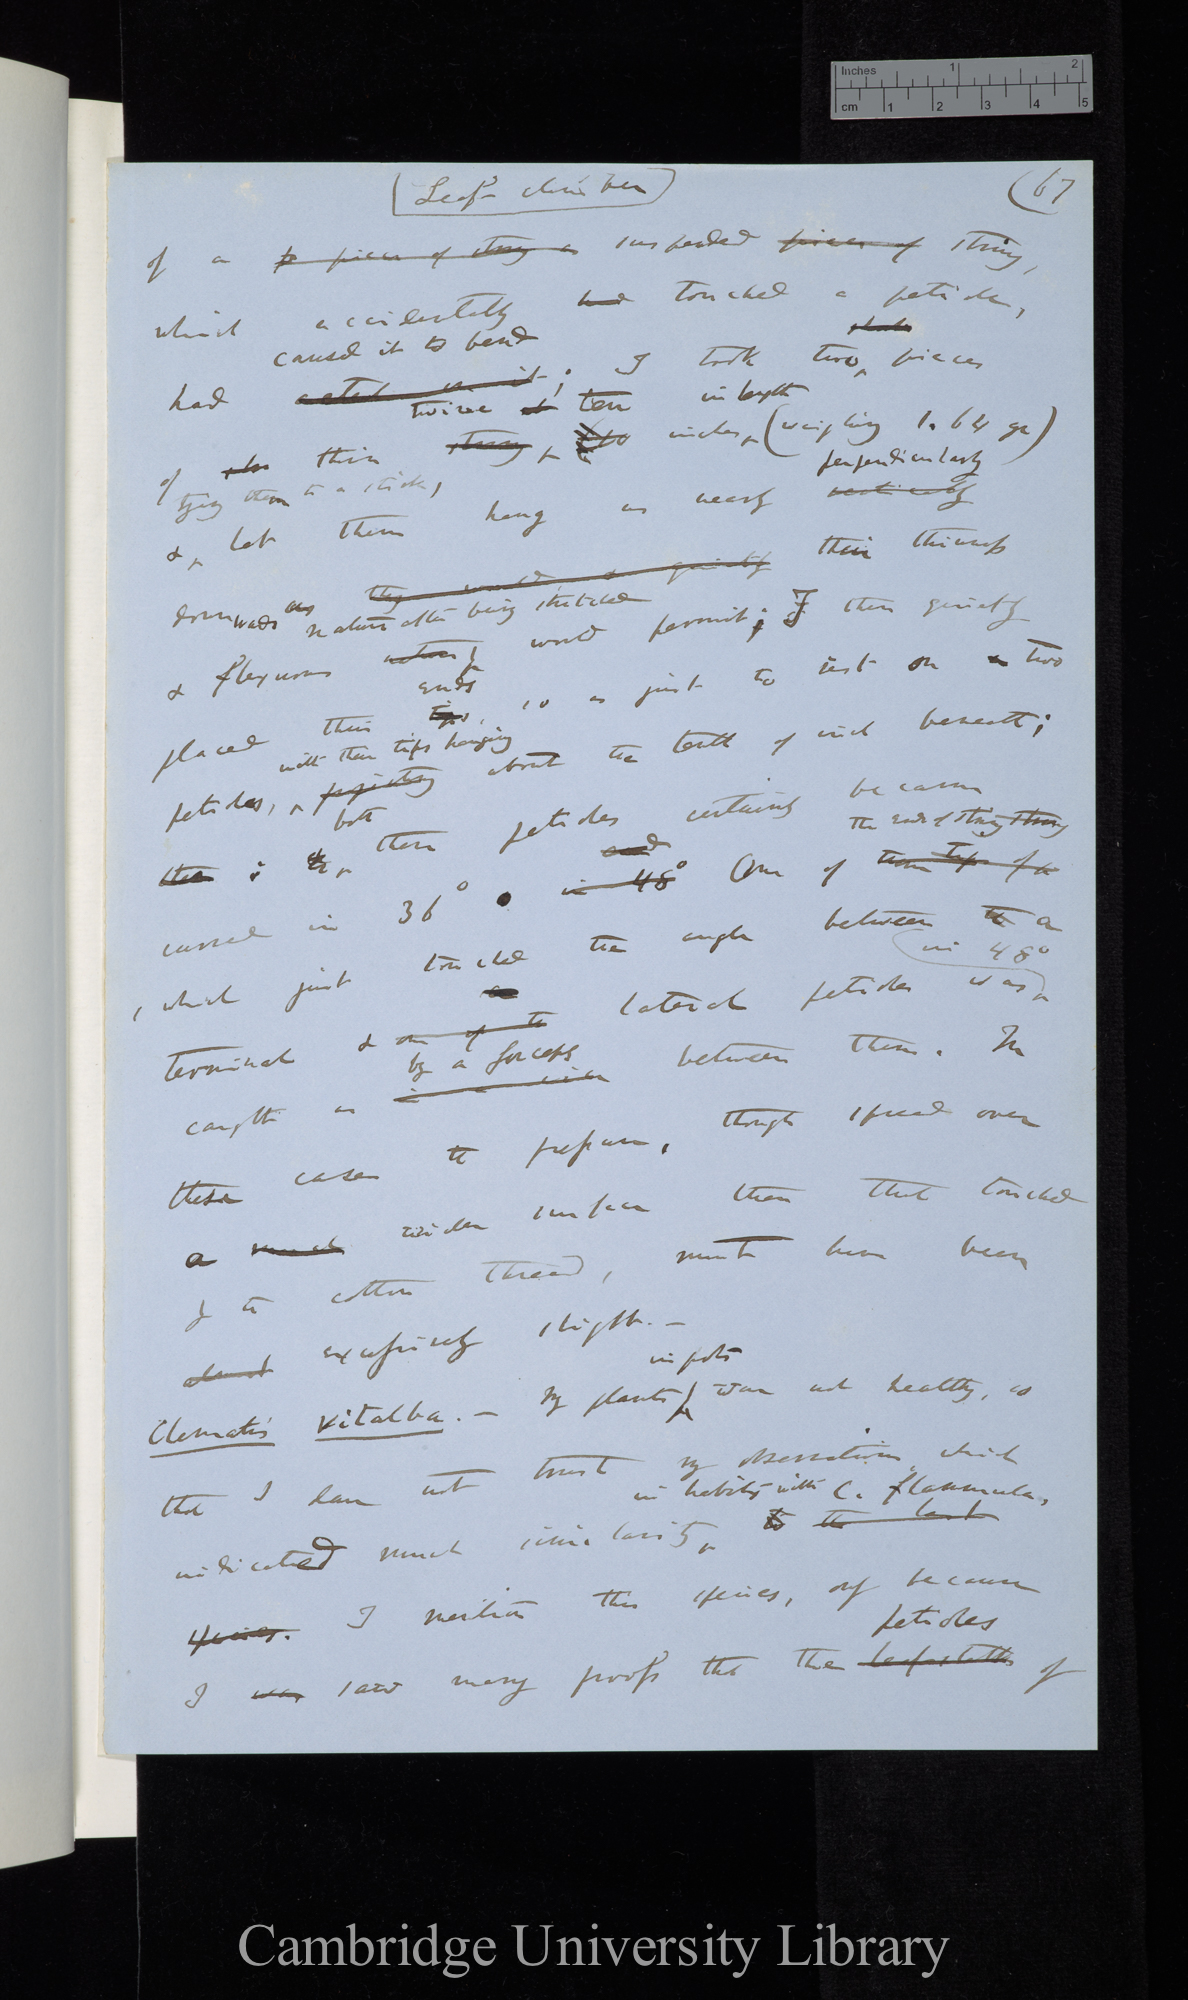 Inches 1 2
cm 1 2 3 4 5
Leaf climbers
(67
of a p piece of string a suspended piece of string,
which accidentally had touched a petiole,
caused it to bend
had acted on it; I took two pieces
twine ten in length
of thin string, inches, (weighing 1.64 gr)
tying them to a stick, perpendicularly
& let them hang as nearly vertically
downwards as they would quietly their thinness
nature after being stretched
& flexuous nature would permit; I then quietly
ends
placed their tips, so as just to rest on a two
with their tips hanging
petioles, projecting about the tenth of inch beneath;
both
these petioles certainly became
and the ends of string
curved in 36° in 48° One of tips of
, which just touched the angle between the a
in 48°
terminal & one of the lateral petioles was
by a forceps
caught as between them. In
these cases the pressure, though spread over
a much wider surface than that touched
by the cotton thread, must have been
almost excessively slight. —
in pots
Clematis vitalba. — My plants were not healthy, so
that I dare not trust my observations, which
in habits with C. flammula.
indicated much similarity to the last
species. I mention this species, only because
petioles
I was saw many proofs that the leaf-stalks of
Cambridge University Library